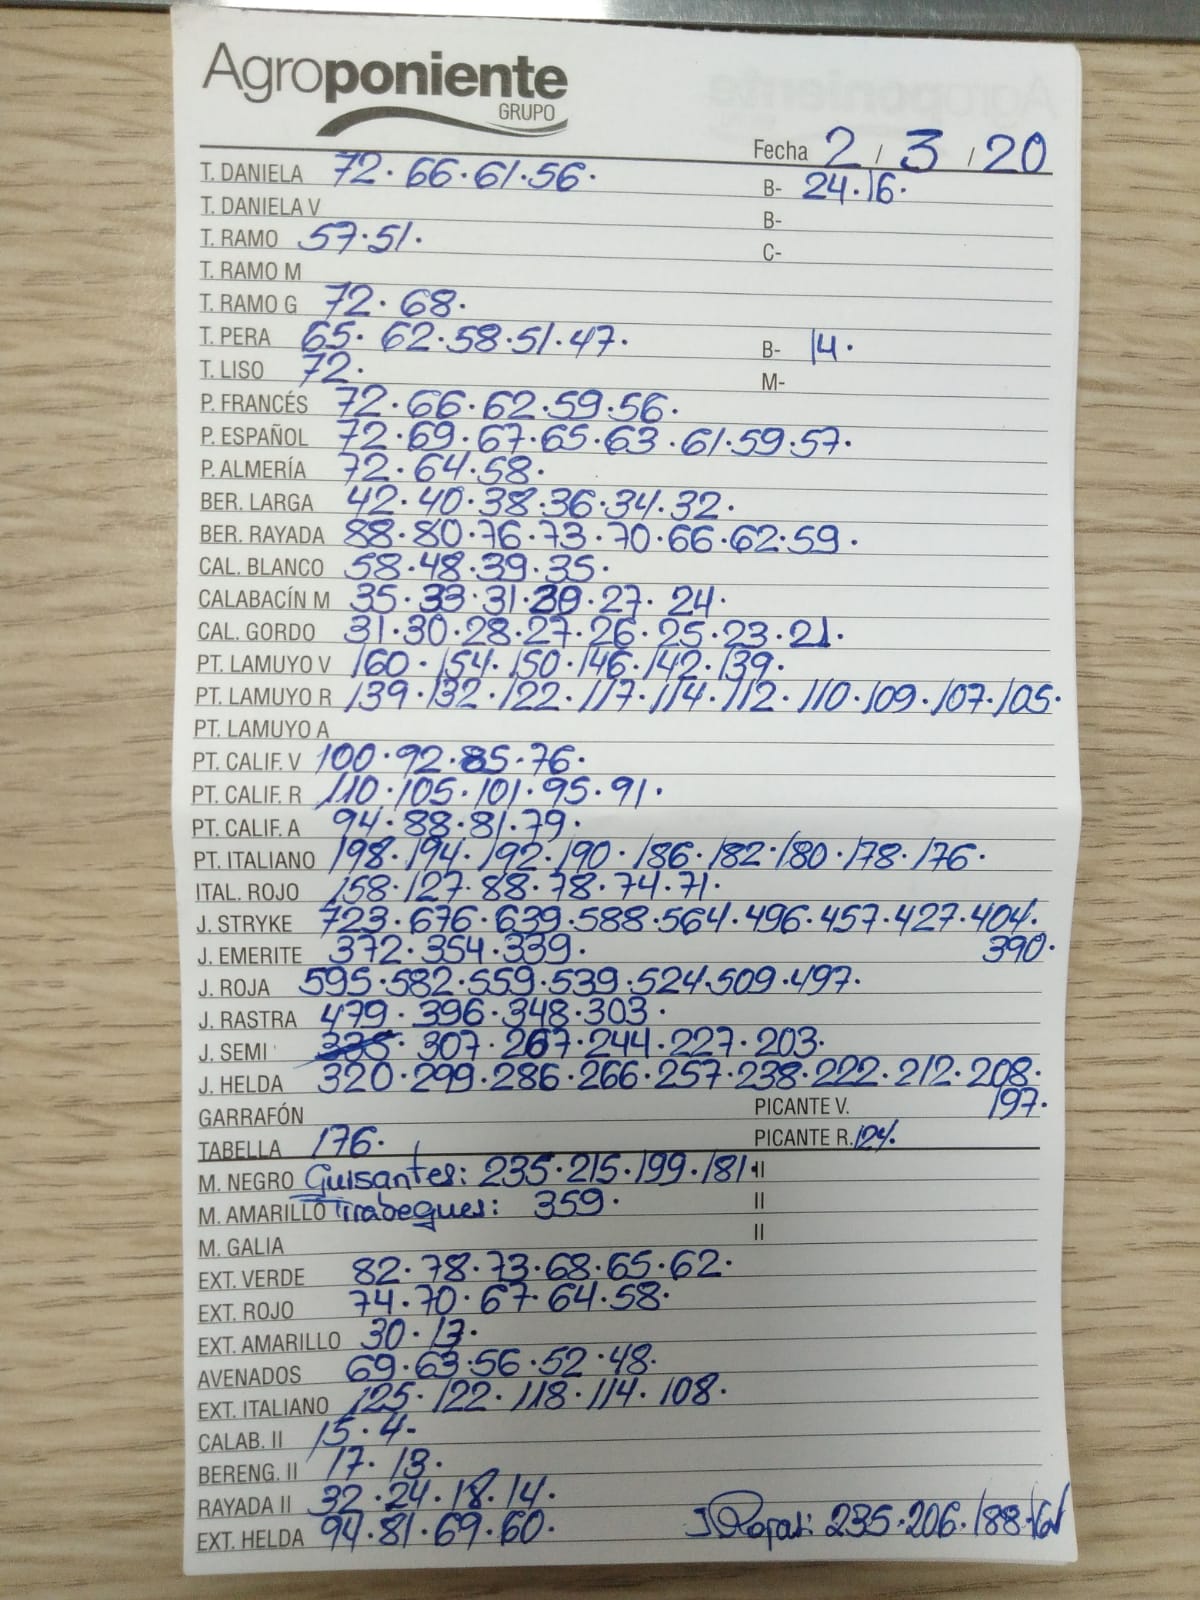 Agroponiente
GRUPO
Fecha 2 / 3 / 20
T. DANIELA 72·66·61·56· B- 24·16·
T. DANIELA V B-
T. RAMO 57·51· C-
T. RAMO M
T. RAMO G 72·68·
T. PERA 65·62·58·51·47· B- 14·
T. LISO 72· M-
P. FRANCÉS 72·66·62·59·56·
P. ESPAÑOL 72·69·67·65·63·61·59·57·
P. ALMERÍA 72·64·58·
BER. LARGA 42·40·38·36·34·32·
BER. RAYADA 88·80·76·73·70·66·62·59·
CAL. BLANCO 58·48·39·35·
CALABACÍN M 35·33·31·30·27·24·
CAL. GORDO 31·30·28·27·26·25·23·21·
PT. LAMUYO V 160·154·150·146·142·139·
PT. LAMUYO R 139·132·122·117·114·112·110·109·107·105·
PT. LAMUYO A
PT. CALIF. V 100·92·85·76·
PT. CALIF. R 110·105·101·95·91·
PT. CALIF. A 94·88·81·79·
PT. ITALIANO 198·194·192·190·186·182·180·178·176·
ITAL. ROJO 158·127·88·78·74·71·
J. STRYKE 723·676·639·588·564·496·457·427·404·
J. EMERITE 372·354·339· 390·
J. ROJA 595·582·559·539·524·509·497·
J. RASTRA 479·396·348·303·
J. SEMI 335·307·267·244·227·203·
J. HELDA 320·299·286·266·257·238·222·212·208·
GARRAFÓN PICANTE V. 197·
TABELLA 176· PICANTE R. 124·
M. NEGRO Guisantes: 235·215·199·181· II
M. AMARILLO Tirabeques: 359· II
M. GALIA II
EXT. VERDE 82·78·73·68·65·62·
EXT. ROJO 74·70·67·64·58·
EXT. AMARILLO 30·13·
AVENADOS 69·63·56·52·48·
EXT. ITALIANO 125·122·118·114·108·
CALAB. II 15·4·
BERENG. II 17·13·
RAYADA II 32·24·18·14·
EXT. HELDA 94·81·69·60· 235·206·188·161